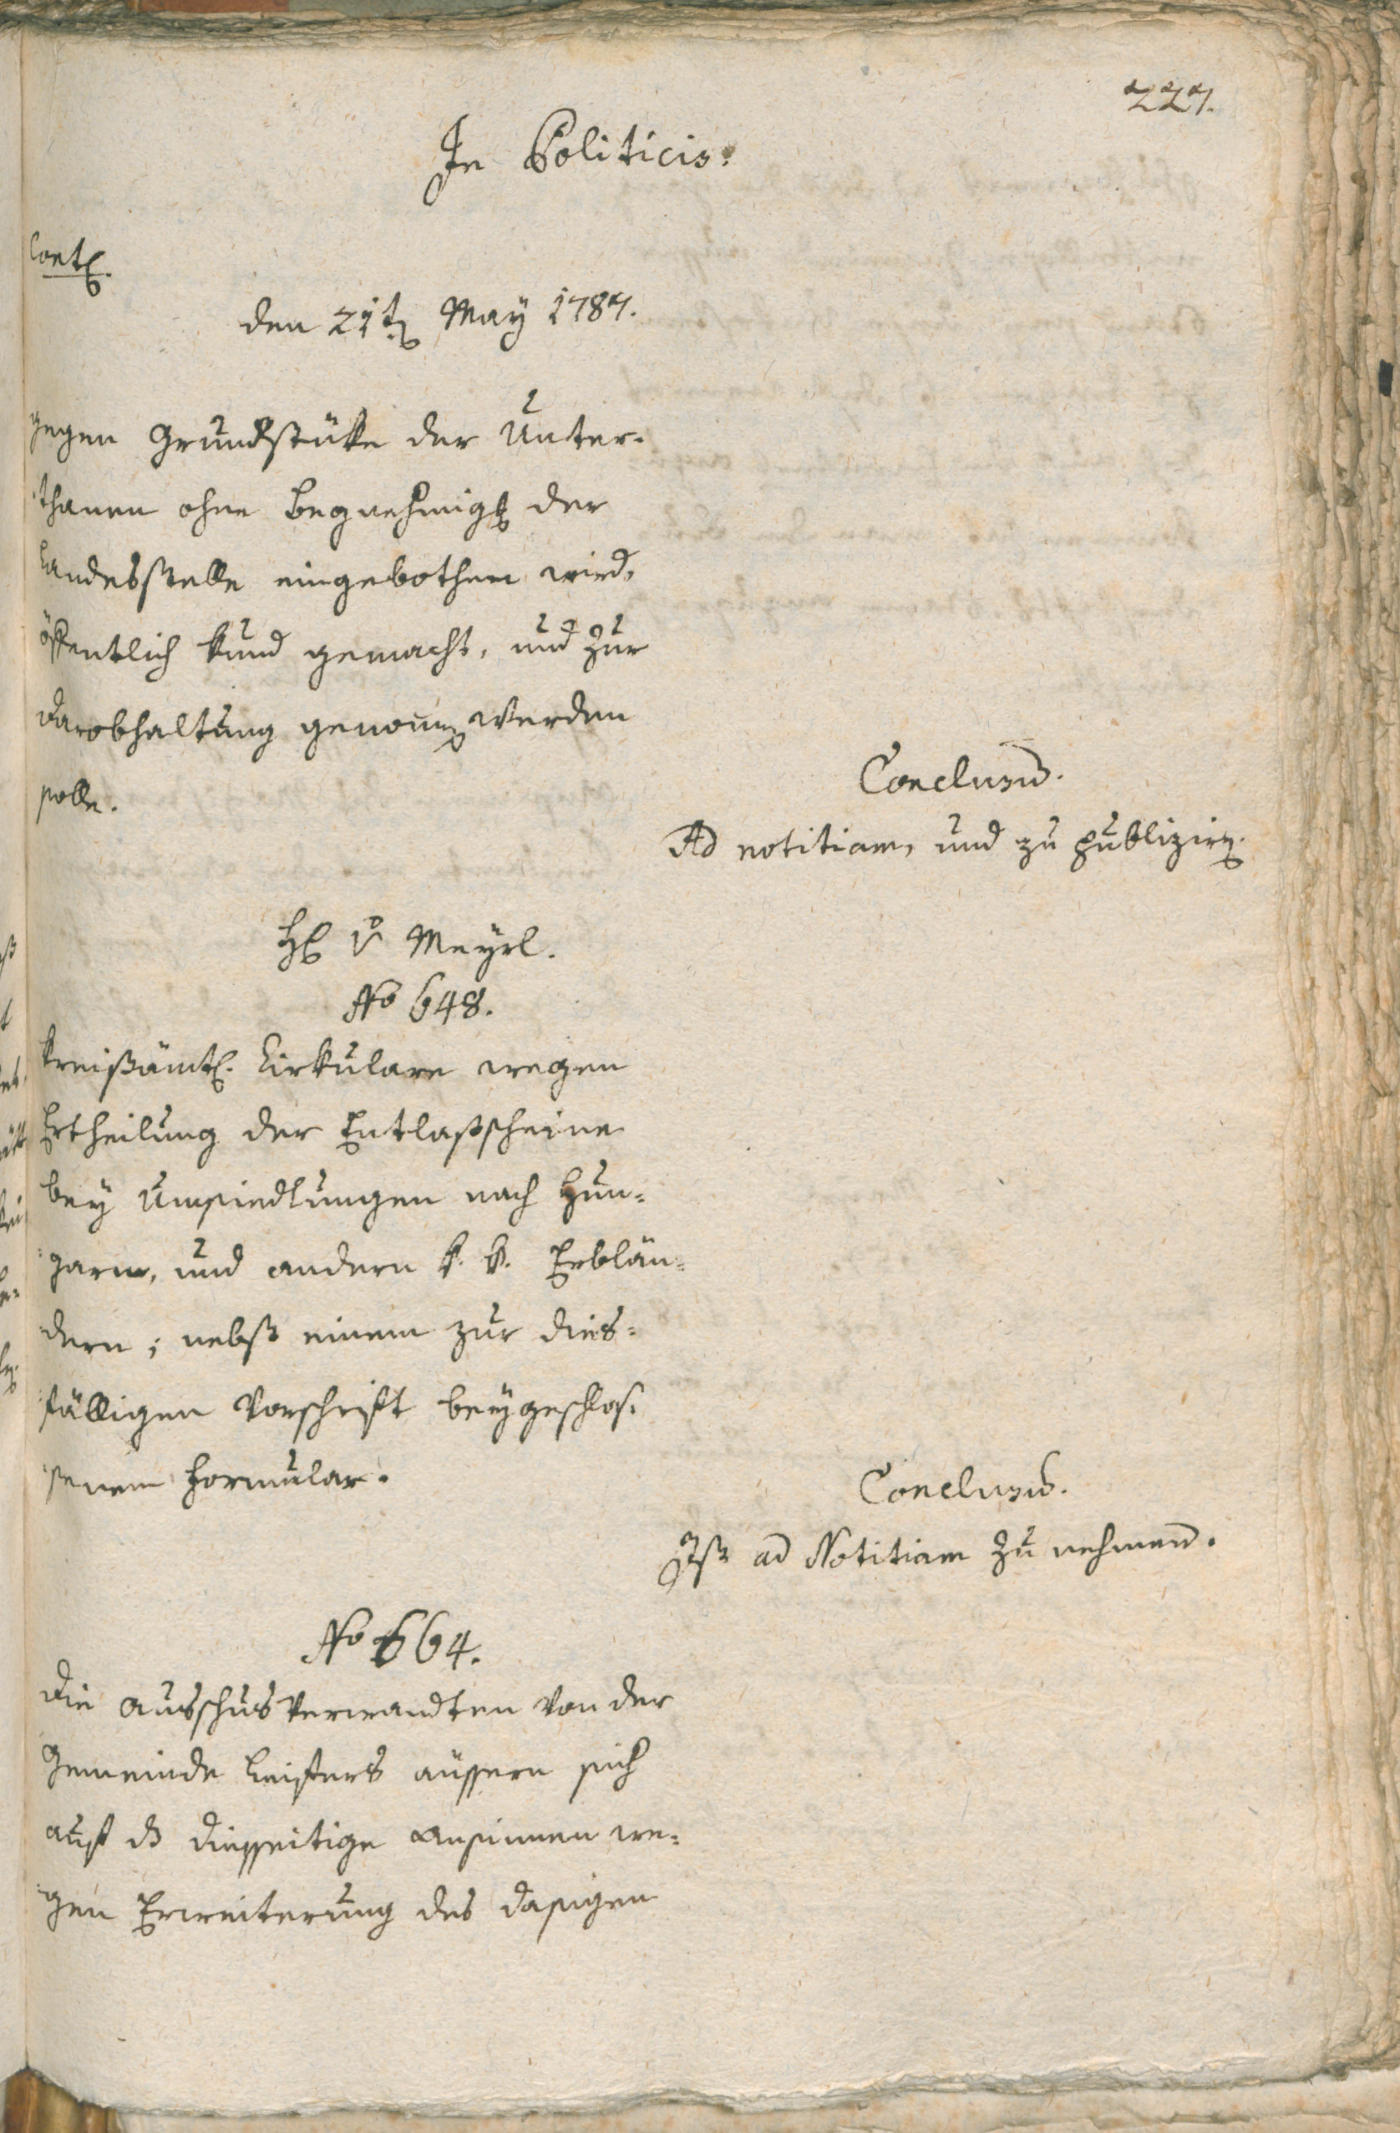 227.
In Politicis.
Cont.
den 21t May 1787.
gegen Grundstüke der Unter-
thanen ohne Begnehmigg der
Landesstelle eingebothen wird,
öffentlich kund gemacht, und zur
darobhaltung genomen werden
solle.
Conclusum.
Ad notitiam, und zu publiziren.
H v Meyrl.
No 648.
Kreißämtl. Cirkulare wegen
Ertheilung der Entlaßscheine
bey Umsiedlungen nach Hun-
garn, und andern k. k. Erblän-
dern; nebst einem zur dies-
fälligen Vorschrift beygeschlos-
senem Formular.
Conclusum.
Ist ad Notitiam zu nehmen.
No 664.
Die Ausschusverwandten von der
Gemeinde Leifers äussern sich
auf das diesseitige Ansinnen we-
gen Erweiterung des dasigen